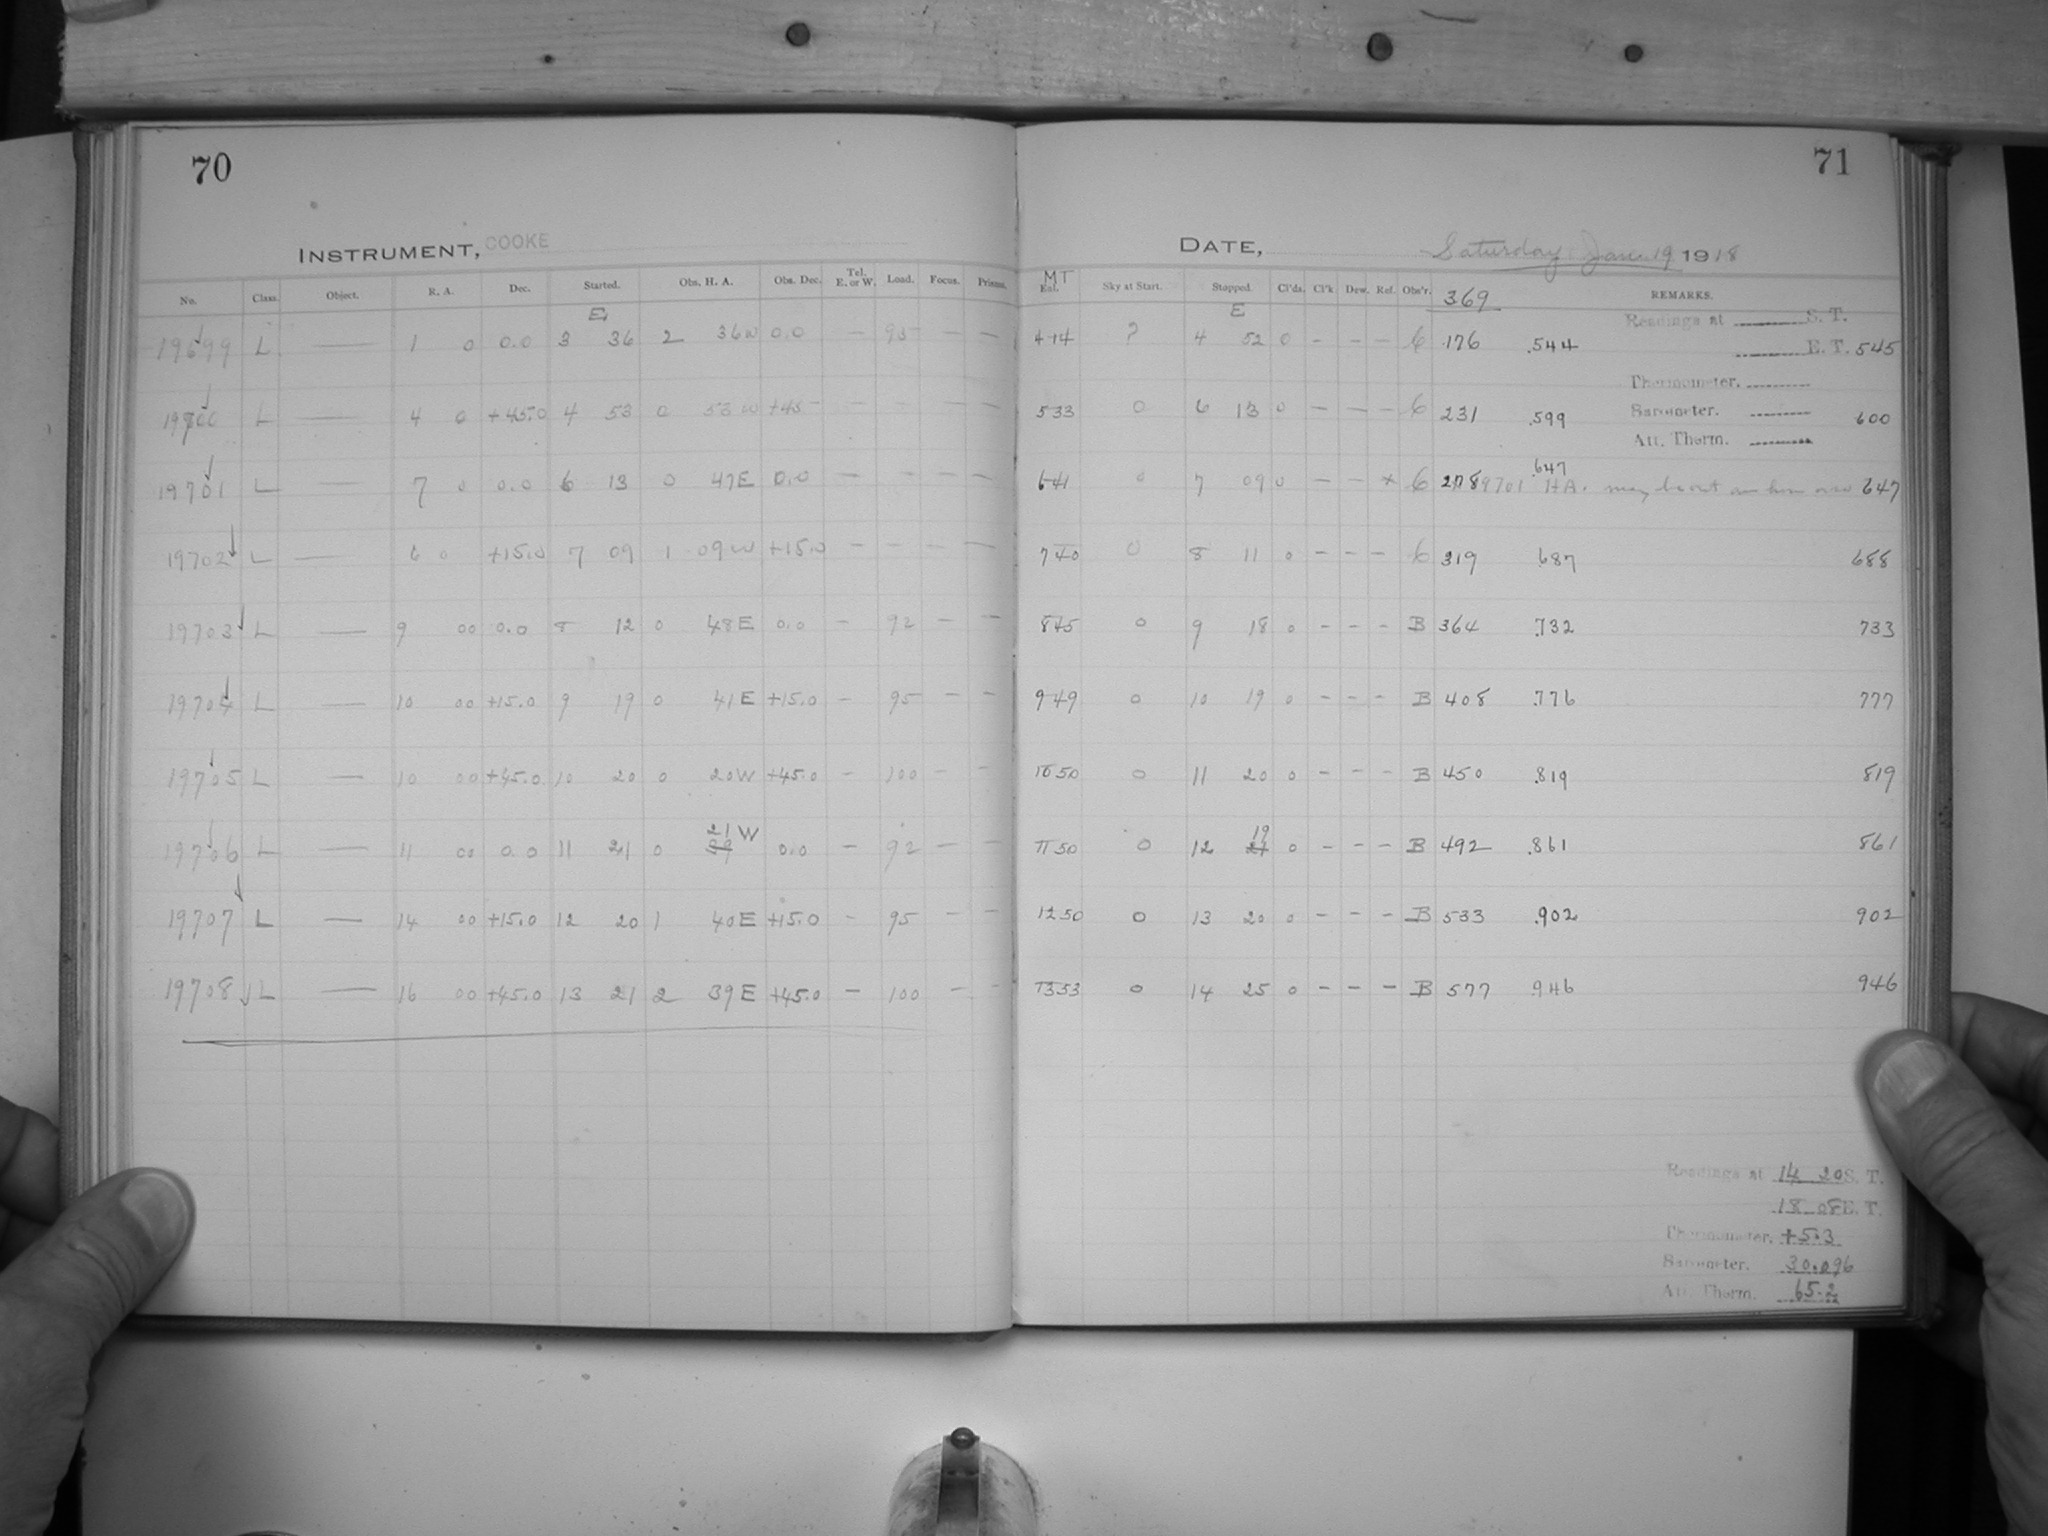 70
INSTRUMENT, COOKE
No. Class. Object. R. A. Dec. Started. Obs. H. A. Obs. Dec. Tel. E. or W. Load. Focus. Prisms.
E
19699 L — 1 0 0.0 3 36 2 36W 0.0 — 95 — —
19700 L — 4 0 +45.0 4 53 0 53W +45 — — — —
19701 L — 7 0 0.0 6 13 0 47E 0.0 — — — —
19702 L — 6 0 +15.0 7 09 1 09W +15.0 — — — —
19703 L — 9 00 0.0 8 12 0 48E 0.0 — 92 — —
19704 L — 10 00 +15.0 9 19 0 41E +15.0 — 95 — —
19705 L — 10 00 +45.0 10 20 0 20W +45.0 — 100 — —
21W
19706 L — 11 00 0.0 11 21 0 0.0 — 92 — —
19707 L — 14 00 +15.0 12 20 1 40E +15.0 — 95 — —
19708 L — 16 00 +45.0 13 21 2 39E +45.0 — 100 — —
71
DATE, Saturday Jan. 19 1918
MT
Ent. Sky at Start. Stopped. Cl'ds. Cl'k Dew. Ref. Obs'r. 369 REMARKS.
E
Readings at S. T.
4 14 ? 4 52 0 - - - 6 .176 .544 E. T. 545
Thermometer.
5 33 0 6 13 0 - - - 6 231 .599 Barometer. 600
Att. Therm.
.647
6 41 0 7 09 0 - - * 6 278 19701 H A. may be out an hour or so 647
7 40 0 8 11 0 - - - 6 319 .687 688
8 45 0 9 18 0 - - - B 364 .732 733
9 49 0 10 19 0 - - - B 408 .776 777
10 50 0 11 20 0 - - - B 450 .819 819
19
11 50 0 12 21 0 - - - B 492 .861 861
12 50 0 13 20 0 - - - B 533 .902 902
13 53 0 14 25 0 - - - B 577 .946 946
Readings at 14 20 S. T.
18 08 E. T.
Thermometer. +5.3
Barometer. 30.096
Att. Therm. 65.2